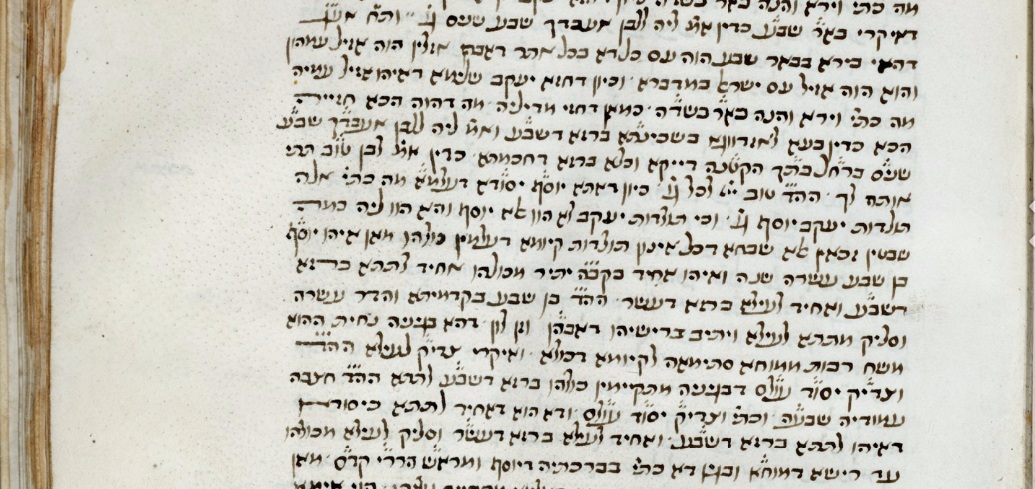 מה כתי׳ וירא והנה באר בשדה
דאיקרי באר שבע כדין אמ׳ ליה ללבן אעבדך שבע שנים וגו׳
דהאי בירא בבאר שבע הוה עם כלא בכל אתר דאבהן אזלין הוה אזיל עמהון
והוא הוה אזיל עם ישר׳ במדברא וכיון דחזא יעקב שלימא דאיהו אזיל עמיה
מה כתי׳ וירא והנה באר בשדה כמאן דחזי מדיליה מה דהוה הכא
הכא כדין בעא לאזדווגא בשכינתא ברזא דשבע ואמ׳ ליה ללבן אעבדך שבע
שנים ברחל בתך הקטנה דייקא וכלא ברזא דחכמתא כדין אמ׳ לבן טוב תתי
אותה לך הה״ד טוב יי׳ לכל וגו׳ כיון דאתא יוסף יסודא דעלמא מה כתי׳ אלה
תולדות יעקב יוסף וגו׳ וכי תולדות יעקב לא הוו אלא יוסף והא הוו ליה כמה
שבטין וכאן אלא שבחא דכל אינון תולדות קיומא דעלמין כולהו מאן איהו יוסף
בן שבע עשרה שנה ואיהו אחיד בקב״ה יתיר מכולהו אחיד לתתא ברזא
דשבע ואחיד לעילא ברזא דעשר הה״ד בן שבע בקדמיתא והדר עשרה
וסליק מתתא לעילא ויתיב ברישיהו דאבהן ומן לון דהא בגיניה נחית ההוא
משח רבות ממוחא סתימאה לקיומא דכולא ואיקרי צדיק לעילא הה״ד
וצדיק יסוד עולם דבגיניה מתקיימין כולהו ברזא דשבע לתתא הה״ד חצבה
עמודיה שבעה וכתי׳ וצדיק יסוד עולם ודא הוא דאחיד לתתא כיסודא
דאיהו לתתא ברזא דשבע ואחיד לעילא ברזא דעשר וסליק לעילא מכולהו
עד רישא דמוחא ובגין דא כתי׳ בברכתיה דיוסף ומראש הררי קדם מאן